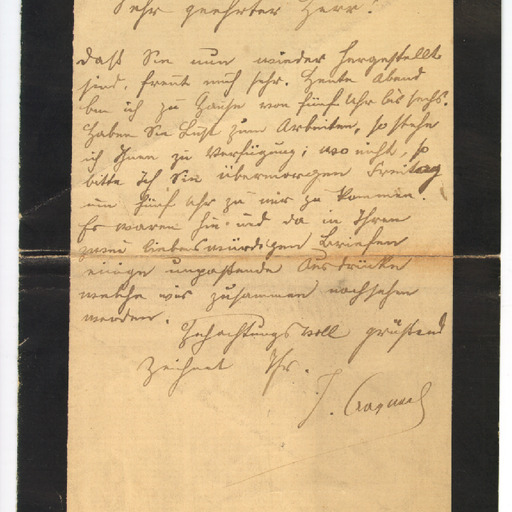 Sehr geehrter Herr!
Daß Sie nun wieder hergestellt
sind, freut mich sehr. Heute Abend
bin ich zu Hause von fünf Uhr bis sechs.
Haben Sie Lust zum Arbeiten, so stehe
ich Ihnen zu Verfügung; wo nicht, so
bitte ich Sie übermorgen Freitag
um fünf Uhr zu mir zu kommen.
Es waren hie und da in Ihren
zwei liebenswürdigen Briefen
einige unpaßende Ausdrücke
welche wir zusammen nachsehen
werden.
Hochachtungsvoll grüßend
zeichnet Ihr.
J.